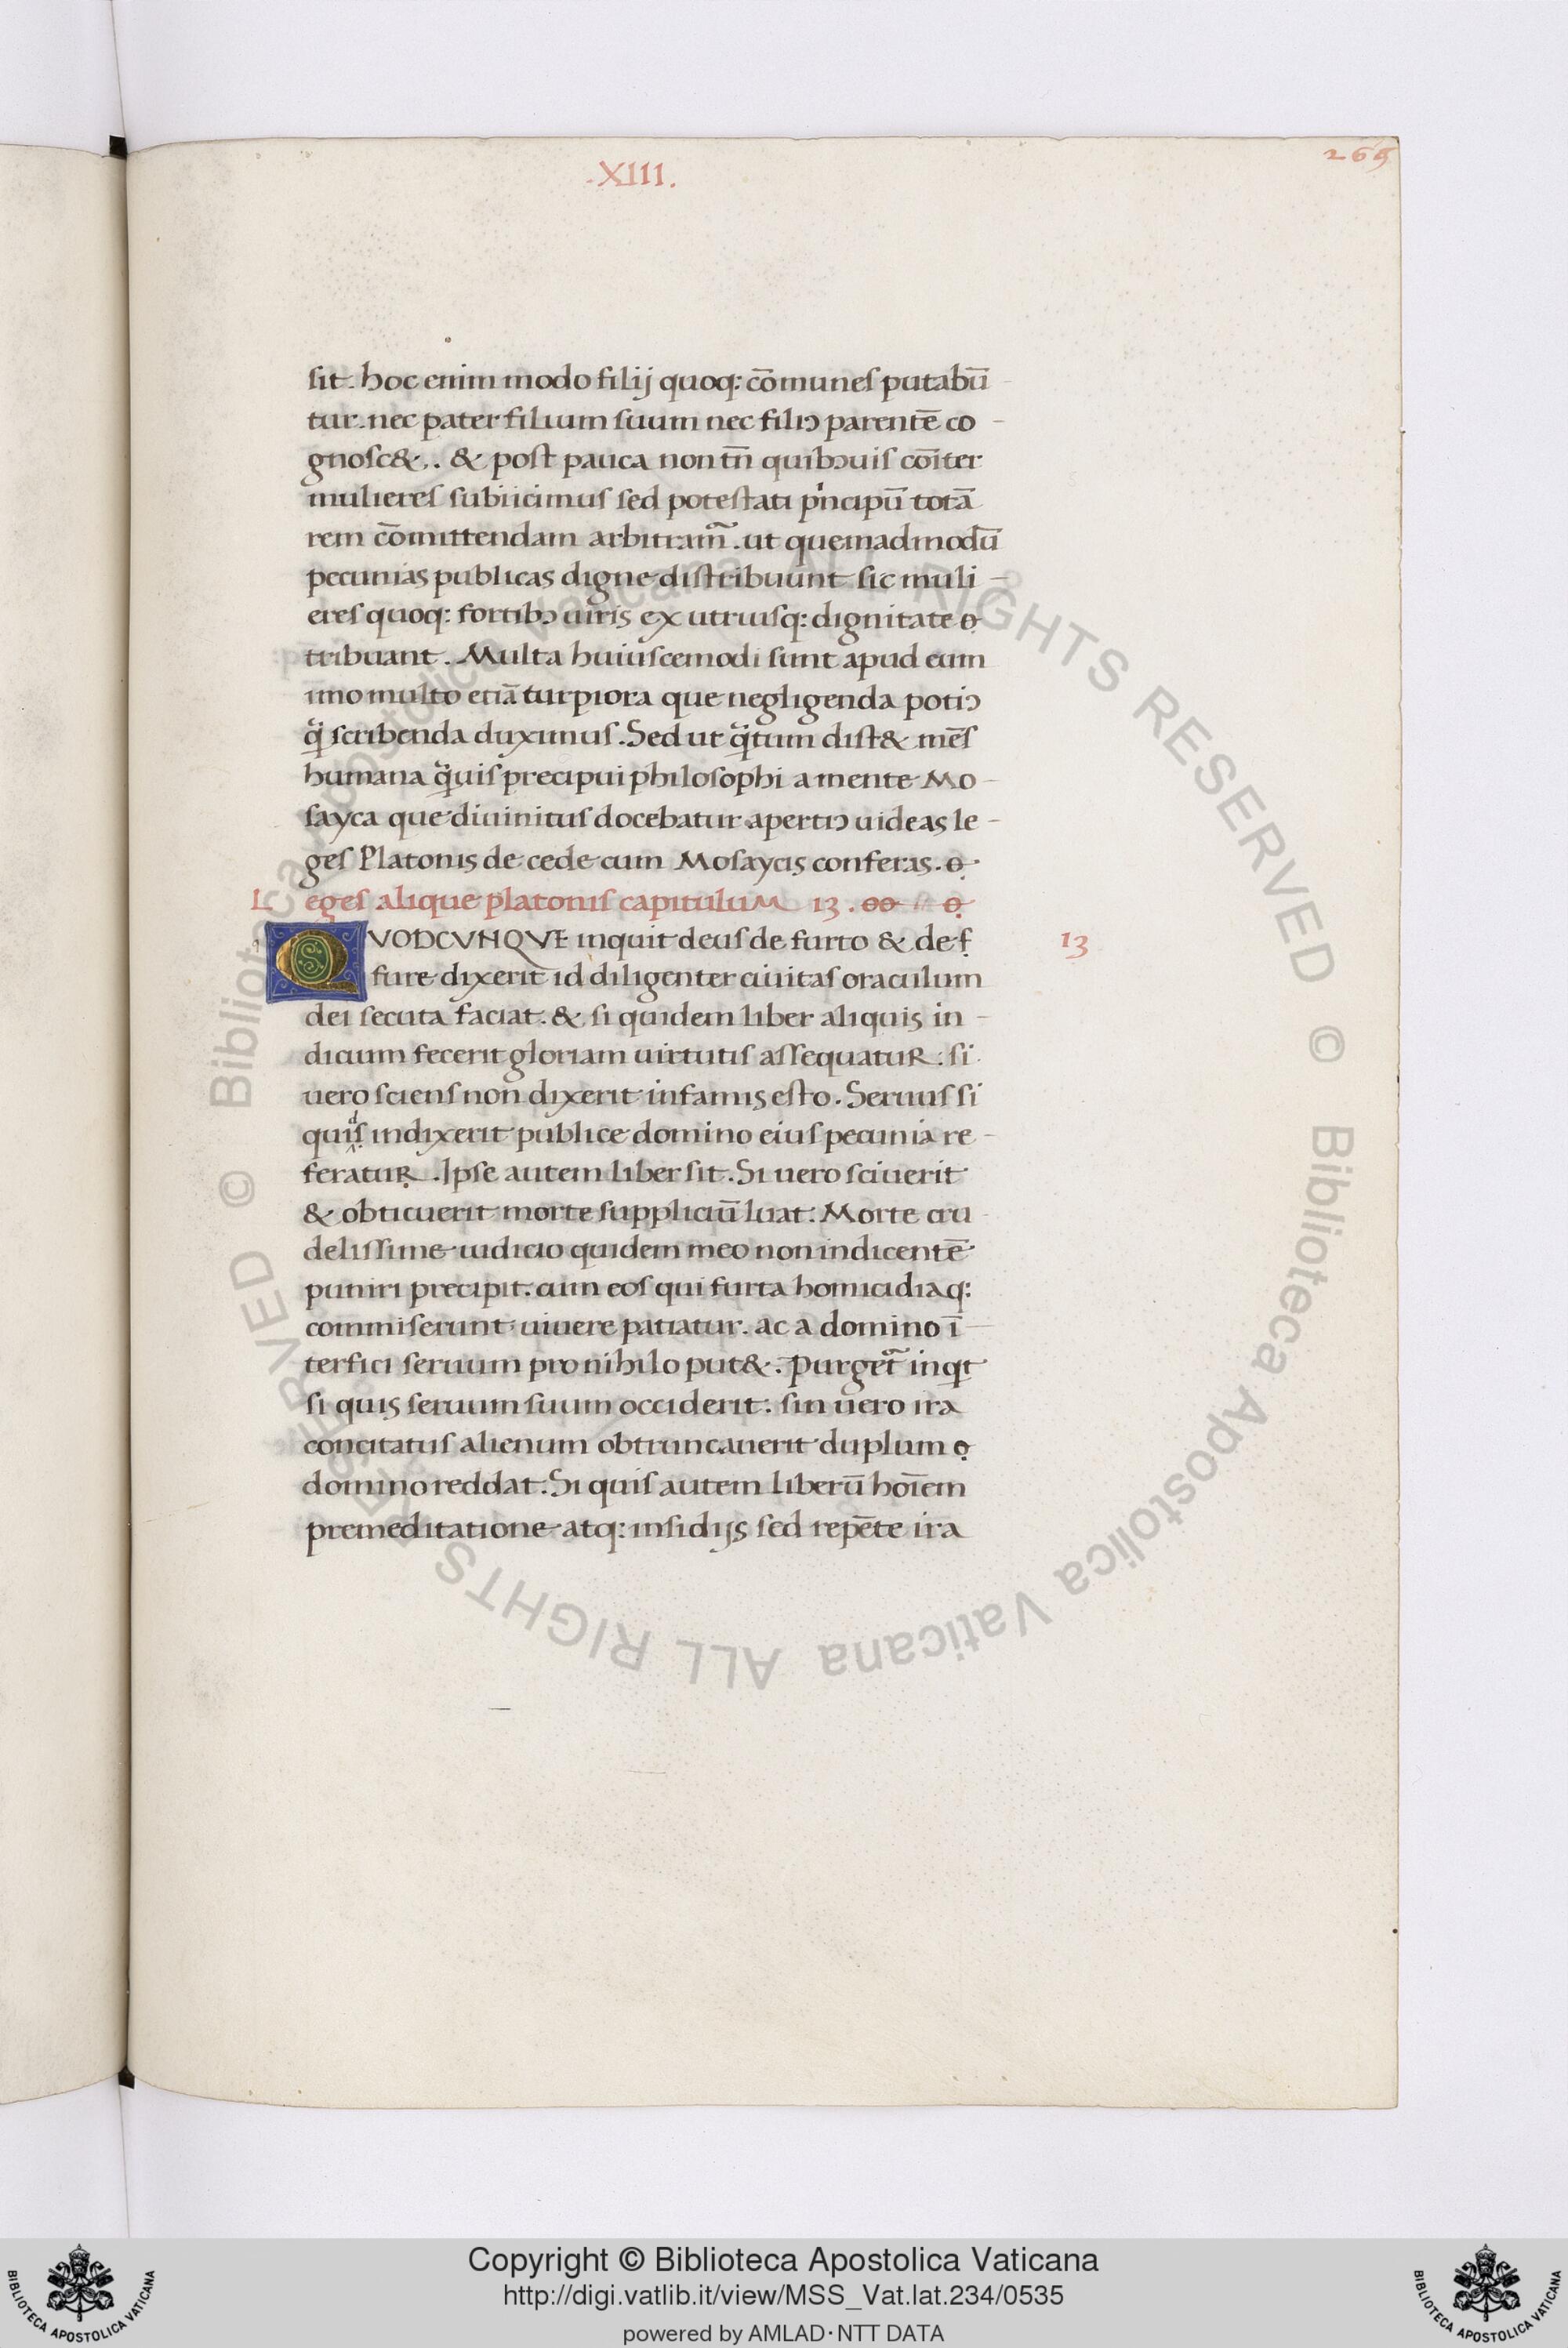 .XIII.
265
sit. hoc enim modo filij quoq: cōmunes putabū
tur. nec pater filium suum nec filiꝰ parentē co-
gnosc&. & post pauca non tn̄ quibꝰuis cōiter
mulieres subiicimus sed potestati pⁱncipū totā
rem cōmittendam arbitram̃. ut quemadmodū
pecunias publicas digne distribuunt sic muli-
eres quoq: fortibꝰ uiris ex utriusq: dignitate
tribuant. Multa huiuscemodi sunt apud eum
imo multo etiā turpiora que negligenda potiꝰ
q̃ scribenda duximus. Sed ut q̃tum dist& mēs
humana q̃uis precipui philosophi a mente Mo-
sayca que diuinitus docebatur apertiꝰ uideas le-
ges Platonis de cede cum Mosaycis conferas.
Leges alique platonis capitulum 13.
QVODCVNQVE inquit deus de furto & de f
13
fure dixerit id diligenter ciuitas oraculum
dei secuta faciat. & si quidem liber aliquis in-
dicium fecerit gloriam uirtutis assequatur: si
uero sciens non dixerit infamis esto. Seruus si
quis indixerit publice domino eius pecunia re-
feratur. Ipse autem liber sit. Si uero sciuerit
& obticuerit morte suppliciū luat: Morte cru
delissime iudicio quidem meo non indicentē
puniri precipit. cum eos qui furta homicidiaq:
commiserunt uiuere patiatur. ac a domino ī
terfici seruum pro nihilo put&. Purget̃ inqt
si quis seruum suum occiderit: sin uero ira
concitatus alienum obtruncauerit duplum
domino reddat. Si quis autem liberū hoīem
premeditatione atq: insidijs sed repēte ira
Copyright © Biblioteca Apostolica Vaticana
http://digi.vatlib.it/view/MSS_Vat.lat.234/0535
powered by AMLAD·NTT DATA
BIBLIOTECA APOSTOLICA VATICANA
BIBLIOTECA APOSTOLICA VATICANA
© Biblioteca Apostolica Vaticana ALL RIGHTS RESERVED
© Biblioteca Apostolica Vaticana ALL RIGHTS RESERVED